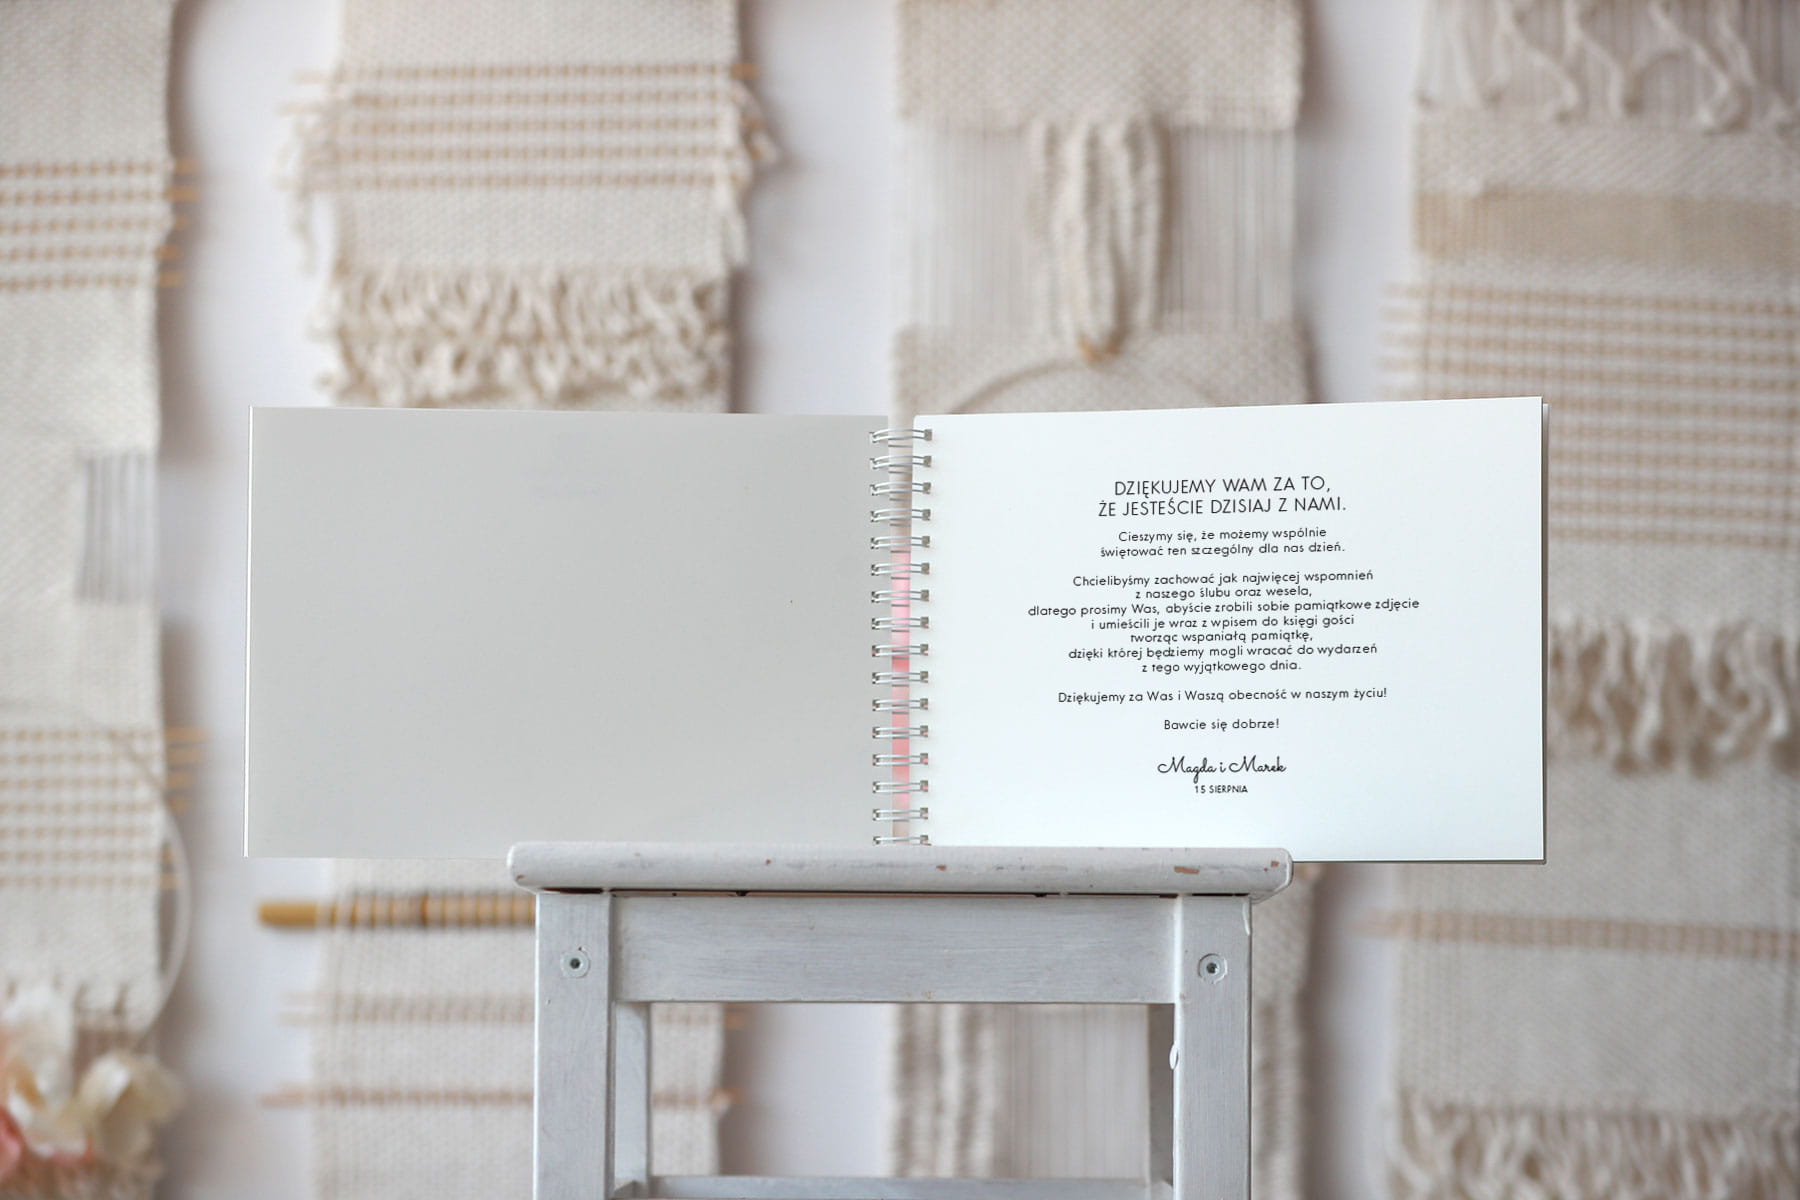 DZIĘKUJEMY WAM ZA TO,
ŻE JESTEŚCIE DZISIAJ Z NAMI.
Cieszymy się, że możemy wspólnie
świętować ten szczególny dla nas dzień.
Chcielibyśmy zachować jak najwięcej wspomnień
z naszego ślubu oraz wesela,
dlatego prosimy Was, abyście zrobili sobie pamiątkowe zdjęcie
i umieścili je wraz z wpisem do księgi gości
tworząc wspaniałą pamiątkę,
dzięki której będziemy mogli wracać do wydarzeń
z tego wyjątkowego dnia.
Dziękujemy za Was i Waszą obecność w naszym życiu!
Bawcie się dobrze!
Magda i Marek
15 SIERPNIA